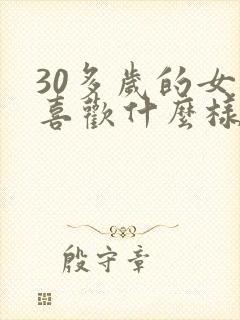 30多歲的女
喜歡什麼樣
殷守章